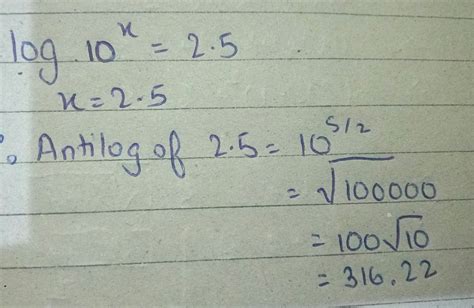 log 10^x = 2.5
x = 2.5
∴ Antilog of 2.5 = 10^5/2
= √100000
= 100√10
= 316.22